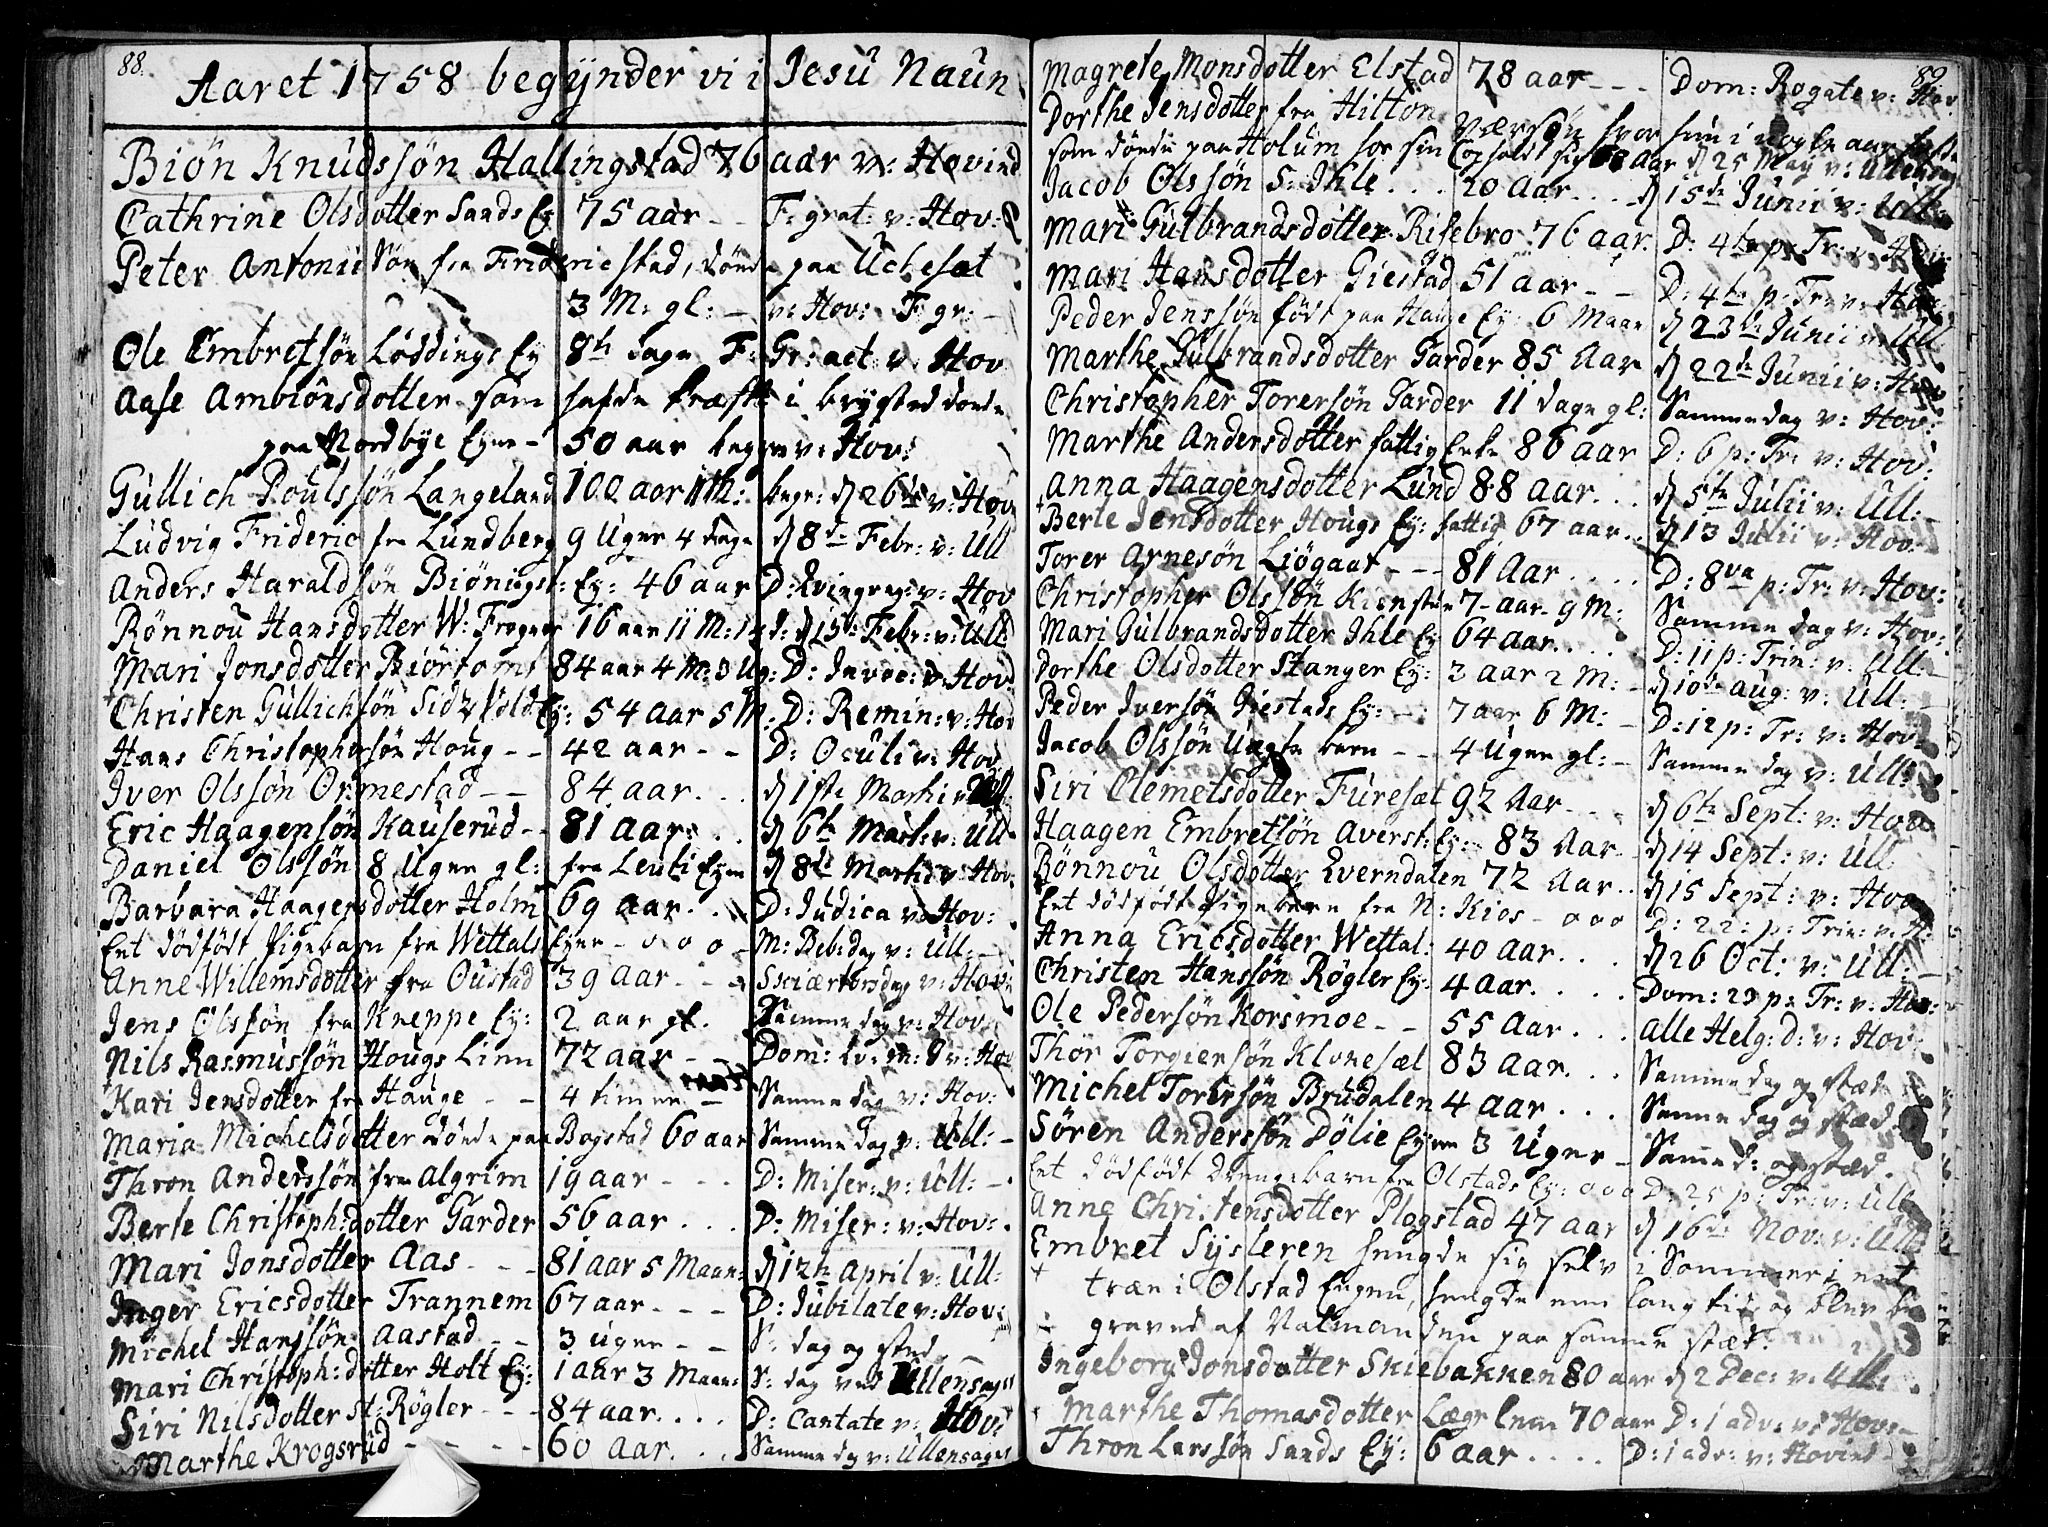 88.
Aaret 1758 begÿnder vi i Jesu Naun
Biön Knudssön Hallingstad 76 aar v: Hovind
Cathrine Olsdotter Sands Ey 75 aar - - F: grat: v: Hov:
Peter Antonii Sön fra Frideric stad, döde paa Uchesæt
3 M: gl: - v: Hov: F: gr: -
Ole Embretsön Löddings Ey 8th dage F: Gr: act v: Hov
Aase Ambiönsdotter som hafde kræft i brÿsted döde
paa Nordbÿe Eÿer - 50 aar begr v: Hov:
Gullich Poulssön Langeland 100 aar 11 M: begr: d 26de v: Hov
Ludvig Frideric fra Lundberg 9 Uger 4 dage d 8de Febr: v: Ull
Anders Haraldsön Biöningst: Ey: 46 aar D: qvinqvag: v: Hov
Rönnou Hansdotter W: Frogner 16 aar 11 M: d 15de Febr: v: Ull
Mari Jonsdotter Biörtomt 84 aar 4 M: 3 Ug: D: Invoc: v: Hov
Christen Gullichsön Ey: 54 aar 5 M: D: Remin: v: Hov
Hans Christophersön Houg - - 42 aar - - D: Oculi v: Hov
Iver Olssön Ormestad - - 84 aar. . . d 1ste Martii v: Ull
Eric Haagensön Kauserud - - 81 aar. . . d 6te Mart: v: Ull
Daniel Olssön 8 Uger gl: fra Eyer d 8de Martii v: Hov:
Barbara Haagensdotter Holm 69 aar. . . D: Judica v: Hov:
Eet dödfödt Pigebarn fra Wettals Eyer - o o o - M: Beb: dag v: Ull: -
Anne Willemsdotter fra Oustad 39 aar - - Sckiærtorsdag v: Hov:
Jens Olssön fra Kneppe Ey: 2 aar gl. Samme dag v: Hov:
Nils Rasmussön Hougs 72 aar - - Dom: v: Hov
Kari Jensdotter fra Hauge - - 4 timer - Samme dag v: Hov:
Maria Michelsdotter döde paa Bogstad 60 aar Samme dag v: Ull: -
Thron Anderssön fra Algrim 19 aar - - - D: Miser: v: Ull: -
Berte Christoph:dotter Garder 56 aar . . . D: Miser: v: Hov: .
Mari Jonsdotter Aas - - - 81 aar 5 Maan: d 12te April v: Ull:
Inger Ericsdotter Trannem 67 aar - - - D: Jubilate v: Hov:
Michel Hanssön Aastad - - 3 uger - - S: dag og sted -
Mari Christoph:dotter Holt Ey: 1 aar 3 Maan: S: dag ved Ullensager
Siri Nilsdotter st: Rögler - - - 84 aar. . . . D: Cantate v: Hov:
Marthe Krogsrud - - - - 60 aar. . . Samme dag v: Ullensager
89.
Magrete Monsdotter Elstad 78 aar - - - Dom: Rogate v: Hov
Dorthe Jensdotter fra Hitton hvor hun i nogle aar
som döde paa Holum hos sin 68 aar d 25 May v: Ullensag
Jacob Olssön S: Ihle . . . 20 aar. . . . d 15de Junii v: Ull:
Mari Gulbrandsdotter Risebro 76 aar. D: 4te p: Tr: v: Hov:
Mari Hansdotter Giestad 51 aar - - D: 4te p: Tr: v: Hov:
Peder Jenssön födt paa Hauge Ey: 6 Maan d 23de Junii v: Ull
Marthe Gulbrandsdotter Garder 85 Aar d 22de Junii v: Hov
Christopher Torersön Garder 11 dage gl: Samme dag v: Hov:
Marthe Andersdotter fattig Enke 86 aar D: 6 p: Tr: v: Hov:
Anna Haagensdotter Lund 88 aar. . . d 5te Julii v: Ull: -
Berte Jensdotter Hougs Ey: fattig 67 aar. . d 13 Julii v: Hov -
Torer Arnesön Liögaat - - - 81 Aar . . . . D: 8va p: Tr: v: Hov:
Christopher Olssön 7 - aar - 9 M: Samme dag v: Hov:
Mari Gulbrandsdotter Ihle Ey 64 aar. . . . D: 11 p: Trin: v: Ull: -
Dorthe Olsdotter Stanger Ey: 3 aar 2 M: - d 10de aug: v: Ull: -
Peder Iversön Giestads Ey: - - 7 aar 6 M: - D: 12 p: Tr: v: Hov
Jacob Olssön barn - - 4 Uger gl: - Samme dag v: Ull:
Siri Clemetsdotter Furesæt 92 Aar - - d 6te Sept: v: Hov
Haagen Embretsön Averst: Ey: - 83 Aar - d 14 Sept: v: Ull
Rönnou Olsdotter Everndalen 72 Aar . . d 15 Sept: v: Hov
Eet dödfödt Pigebarn fra N: Kios - o o o D: 22: p: Trin: v: H:
Anna Ericsdotter Wettal: 40 aar. . . . d 26 Oct: v: Ull: -
Christen Hanssön Rögler Ey: 4 aar. . . . Dom: 23 p: Tr: v: Hov:
Ole Pedersön Korsmoe - - 55 Aar . . . Alle Helg: D: v: Hov:
Thor Torgiersön Kloxesæt 83 aar. . . Samme dag og stæd
Michel Torersön Brudalen 4 aar . . . Samme dag og stæd
Sören Anderssön Dölie Eyer 3 Uger - Samme D: og stæd.
Eet dödfödt Drengebarn fra Olstads Ey: o o o D: 25 p: Tr: v: Ull
Anne Christensdotter Plogstad 47 aar d 16de Nov: v: Ull
Embret Sÿsleren hengde sig selv i Sommer i eet
træe i Olstad Engen, hengde een lang tid og blev be
graved af Natmanden paa samme stæd.
Ingeborg Jonsdotter Skiebakken 80 aar d 2 Dec: v: Ull:
Marthe Thomasdotter Lægs lem 70 aar D: 1 adv: v: Hov: -
Thron Larssön Sands Ey: 6 aar . . . . D: 1 adv: v: Hovind -